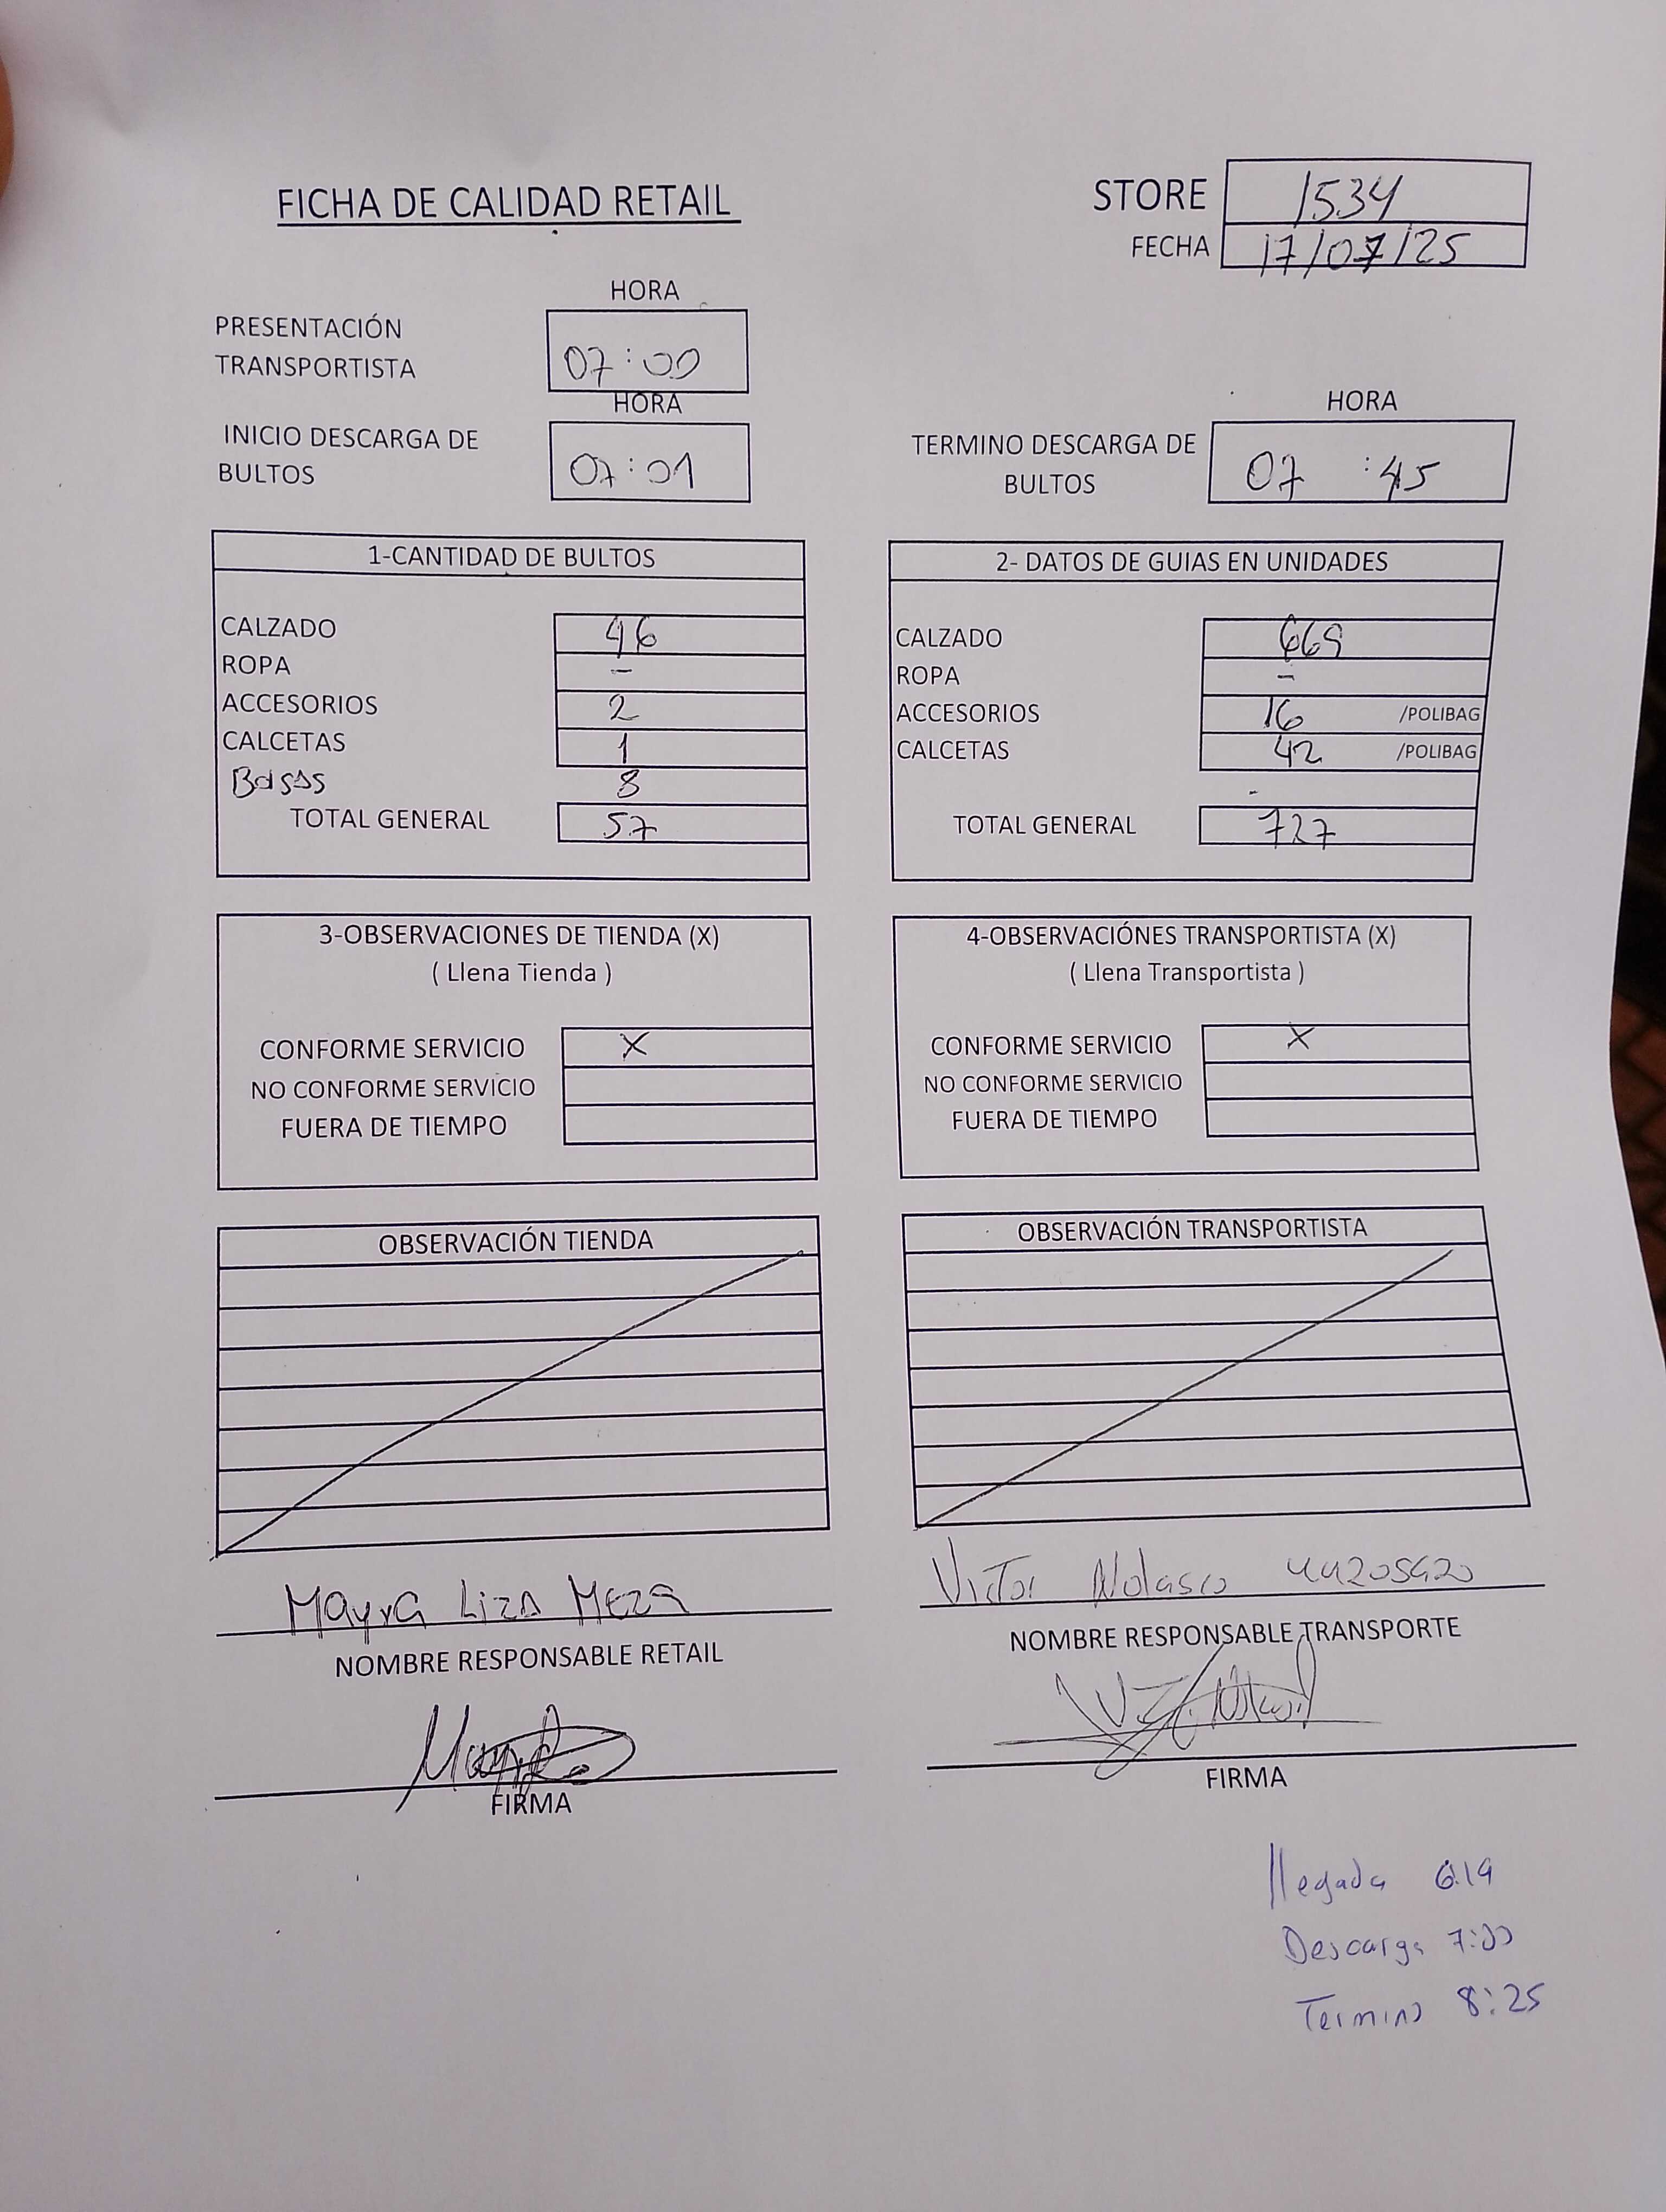 FICHA DE CALIDAD RETAIL
STORE 1534
FECHA 17/07/25
HORA
PRESENTACIÓN TRANSPORTISTA 07:00
HORA
INICIO DESCARGA DE BULTOS 07:01
HORA
TERMINO DESCARGA DE BULTOS 07:45
1-CANTIDAD DE BULTOS
CALZADO 46
ROPA -
ACCESORIOS 2
CALCETAS 1
Bolsas 8
TOTAL GENERAL 57
2- DATOS DE GUIAS EN UNIDADES
CALZADO 669
ROPA -
ACCESORIOS 16 /POLIBAG
CALCETAS 42 /POLIBAG
-
TOTAL GENERAL 727
3-OBSERVACIONES DE TIENDA (X)
( Llena Tienda )
CONFORME SERVICIO X
NO CONFORME SERVICIO
FUERA DE TIEMPO
4-OBSERVACIÓNES TRANSPORTISTA (X)
( Llena Transportista )
CONFORME SERVICIO X
NO CONFORME SERVICIO
FUERA DE TIEMPO
OBSERVACIÓN TIENDA
OBSERVACIÓN TRANSPORTISTA
Mayra Liza Meza
NOMBRE RESPONSABLE RETAIL
FIRMA
Victor Nolasco 44205420
NOMBRE RESPONSABLE TRANSPORTE
FIRMA
llegada 6:19
Descarga 7:00
Termino 8:25